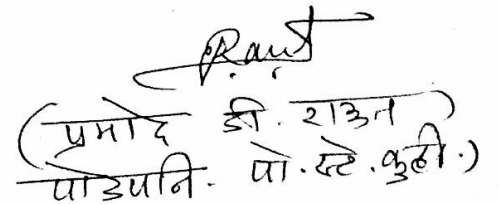 P. Raut
(प्रमोद डी. राऊत)
पोउपनि. पो.स्टे. कुही.)